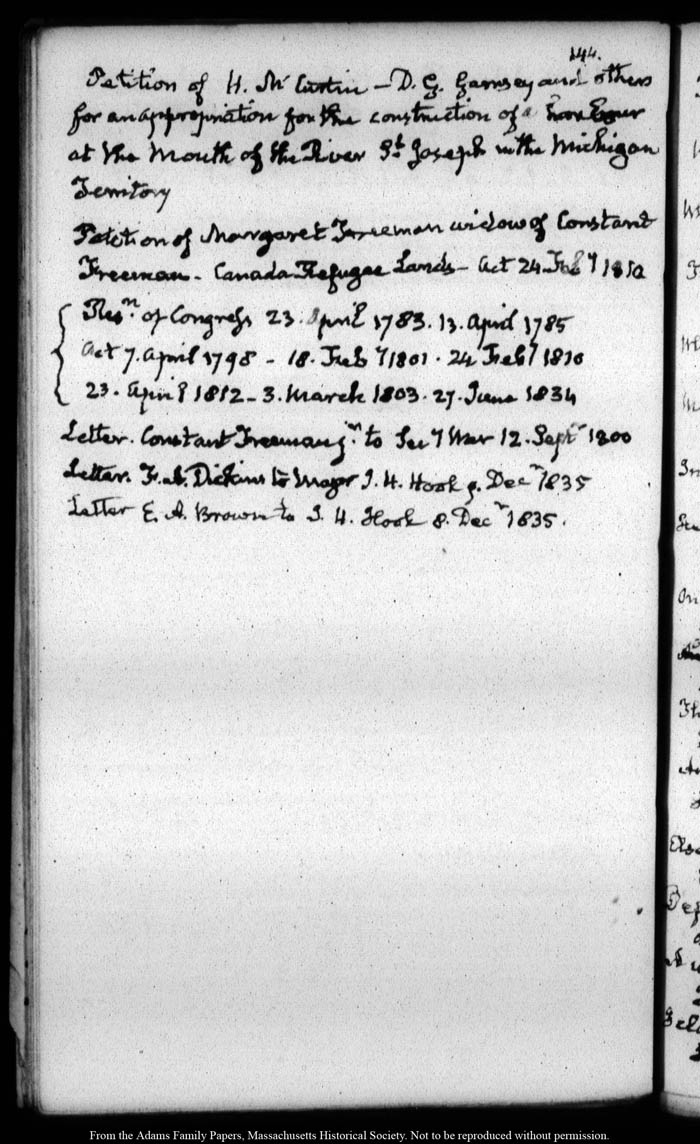 144.
Petition of H. McCurtin — D. G. Garnsey and others
for an appropriation for the construction of a
at the Mouth of the River St. Joseph in the Michigan
Territory
Petition of Margaret Freeman widow of Constant
Freeman - Canada Refugee Lands - Act 24. Feby 1810
Resn. of Congress 23. April 1783. 13. April 1785
Act 7. April 1798 - 18. Feby 1801. 24 Feby 1810
23. April 1812 - 3. March 1803. 27. June 1834
Letter. Constant Freeman to Secy War 12. Septr 1800
Letter. F. A. Dickins to Major J. H. Hook 9. Decr 1835
Letter E. A. Brown to J. H. Hook 8. Decr 1835.
From the Adams Family Papers, Massachusetts Historical Society. Not to be reproduced without permission.